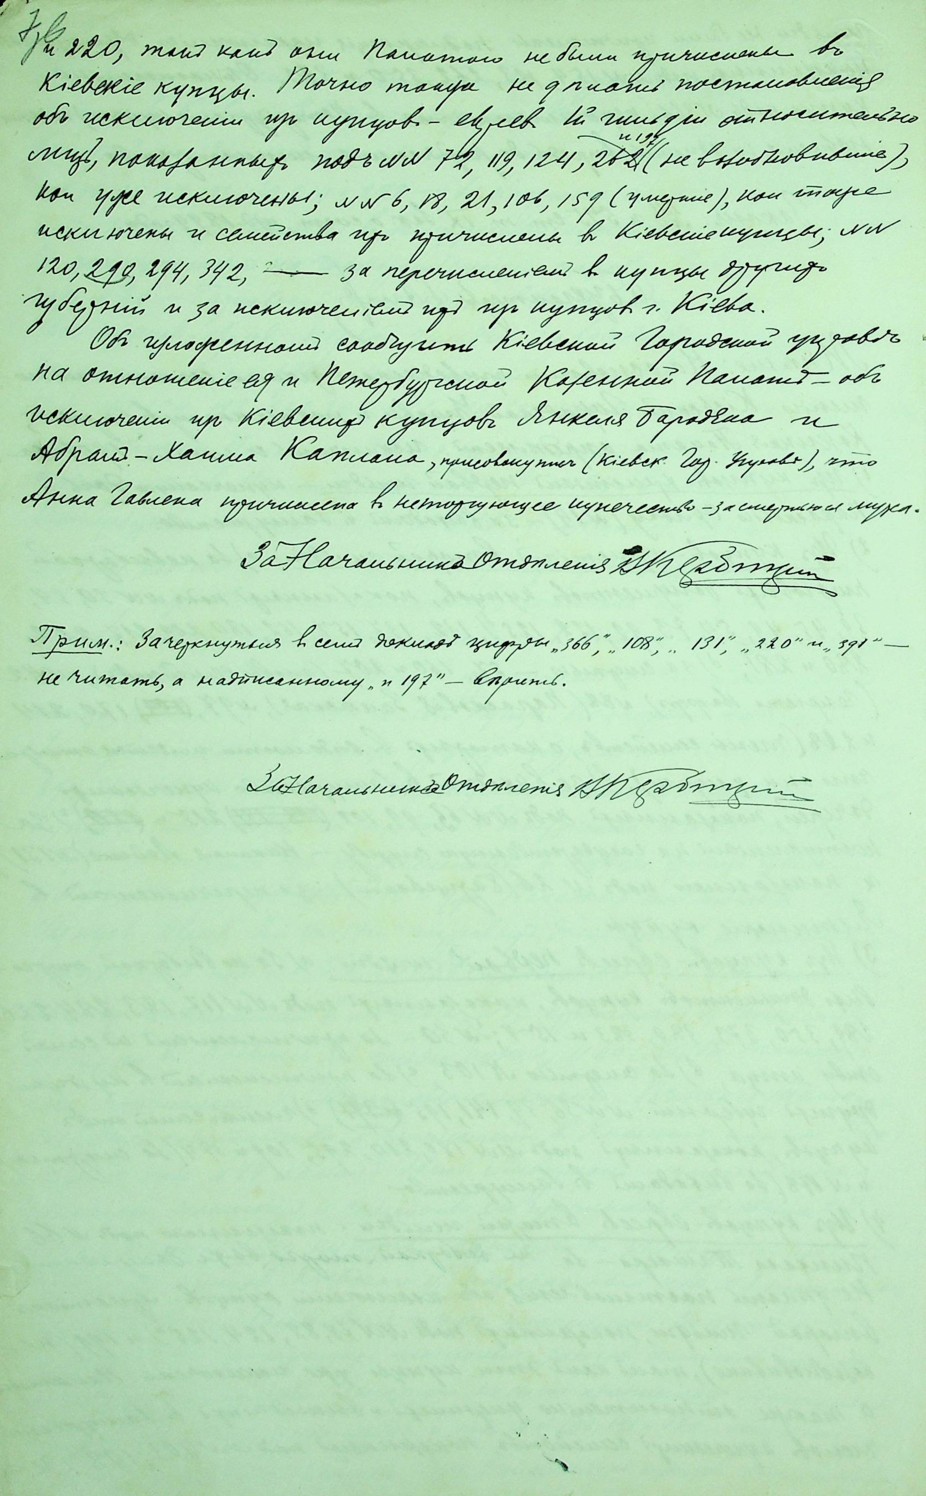 и 220, такъ какъ они Палатою не были причислены въ
Кіевскіе купцы. Точно также не дѣлать постановленія
объ исключеніи изъ купцовъ – евреевъ II гильдіи относительно
и 197
лицъ, показанныхъ подъ NN 72, 119, 124, 262 (не возобновившіе),
кои уже исключены; NN 6, 18, 21, 106, 159 (умершіе), кои также
исключены и семейства ихъ причислены въ Кіевскіе купцы; NN
120, 290, 294, 342, — за перечисленіемъ въ купцы другихъ
губерній и за исключеніемъ ихъ изъ купцовъ г. Кіева.
Объ изложенномъ сообщить Кіевской Городской Управѣ
на отношеніе ея и Петербургской Казенной Палатѣ – объ
исключеніи изъ Кіевскихъ купцовъ Янкеля Бародѣла и
Абрамъ – Хаима Каплана, присовокупивъ (Кіевск. Гор. Управѣ), что
Анна Гавлена причислена въ неторгующее купечество – за смертью мужа.
За Начальника Отдѣленія
Прим.: Зачеркнутыя въ семъ докладѣ цифры „366", „108", „131", „220" и „391" —
не читать, а надписанному „и 197" – вѣрить.
За Начальника Отдѣленія